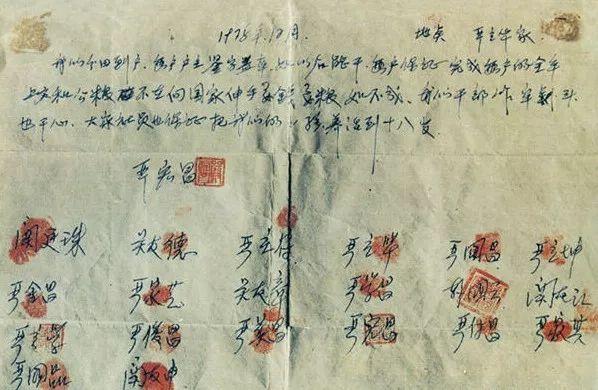 1978年12月 地点 严立华家
我们分田到户,每户户主签字盖章,如以后能干,每户保证完成每户的全年
上交和公粮 不在向国家伸手要钱要粮,如不成,我们干部作牢杀头
也干心,大家社员也保证把我们的小孩养活到十八岁。
严宏昌
关廷珠 关友德 严立付 严立华 严国昌 严立坤
严金昌 严家芝 关友章 严学昌 韩国云 关友江
严立学 严俊昌 严美昌 严宏昌 严付昌 严家其
严国品 关友申